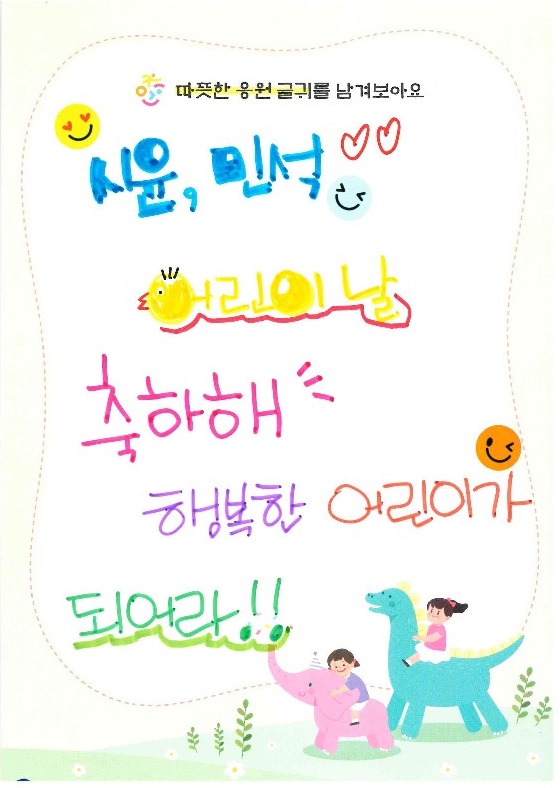 따뜻한 응원 글귀를 남겨보아요
시윤, 민석
어린이 날
축하해
행복한 어린이가
되어라!!